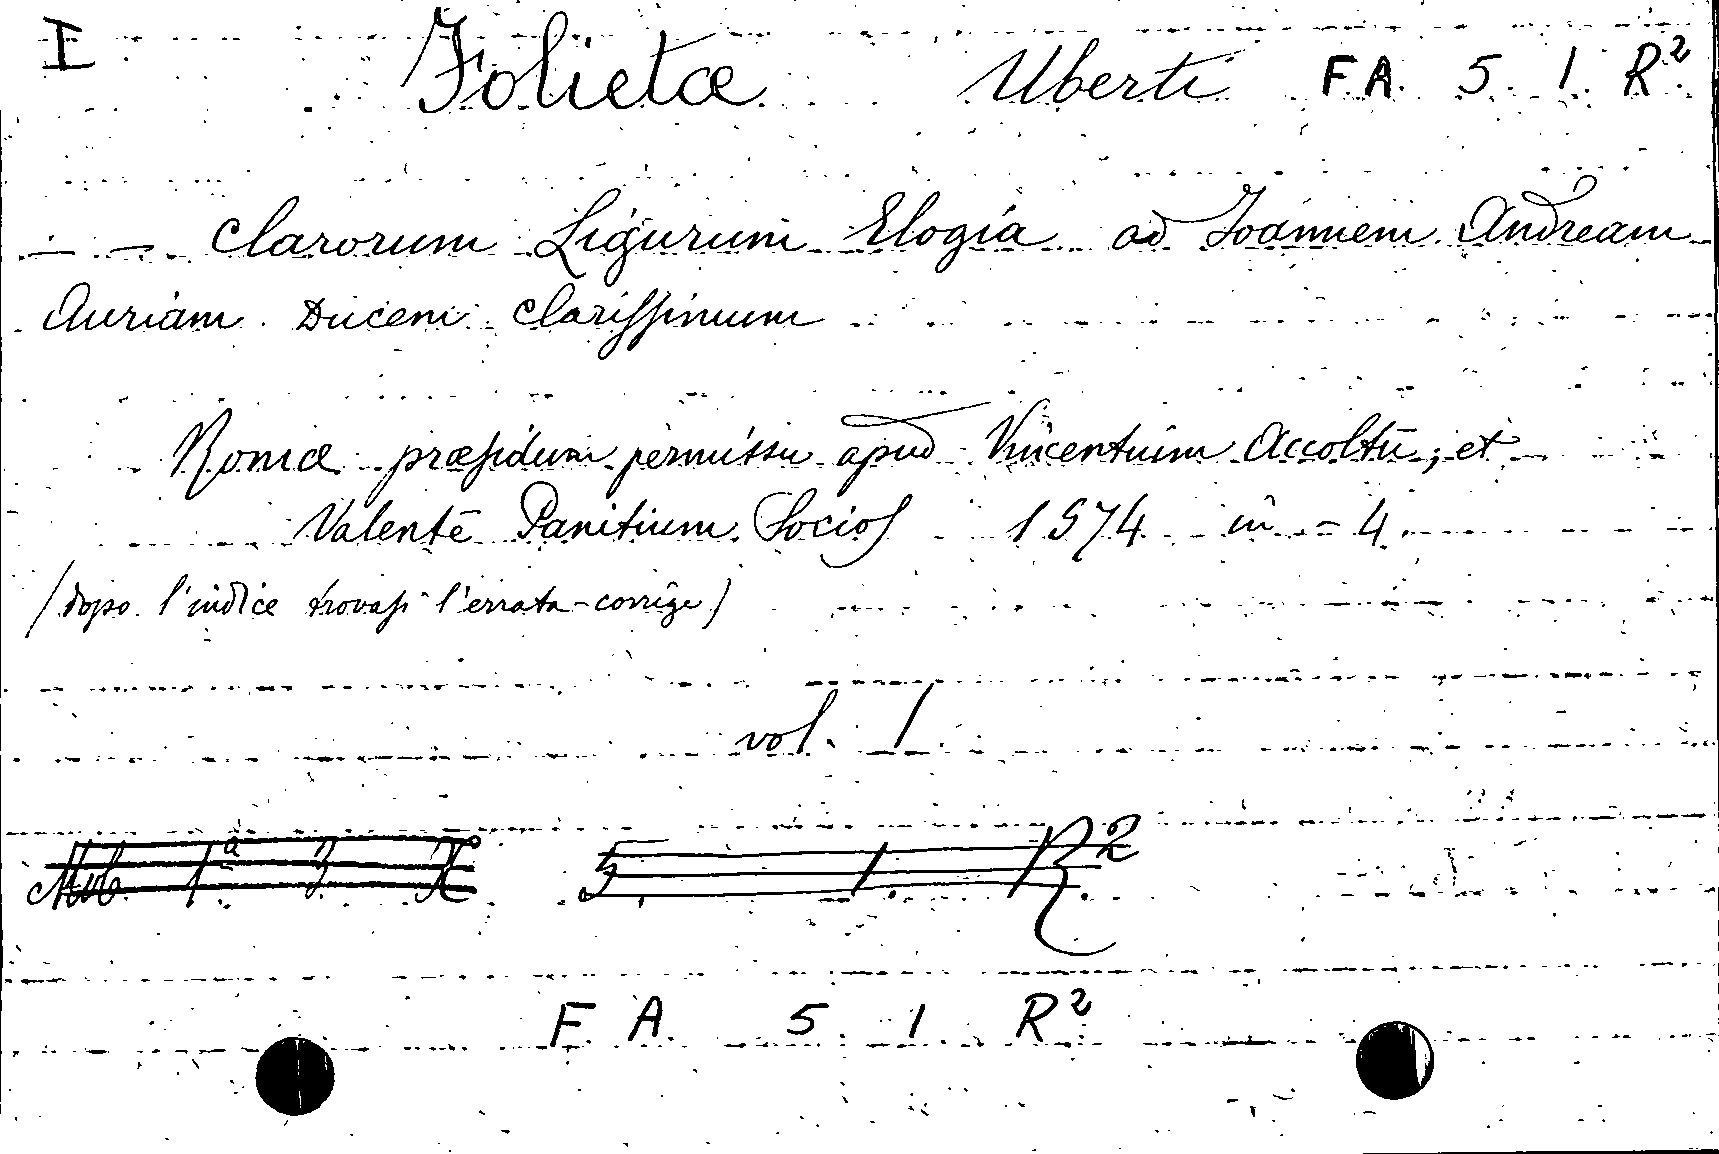 I Folietæ Uberti F A. 5. 1. R².
— — Clarorum Ligurum Elogia ad Joannem Andream
Auriam Ducem Clarissimum
Romæ præsidum permissu apud Vincentium Accoltū, et
Valentē Panitium Socios 1574 in = 4.
(dopo l'indice trovasi l'errata-corrige)
vol. 1
Mob. 1ª 3 X 5 1. R.²
F. A. 5. 1 R²